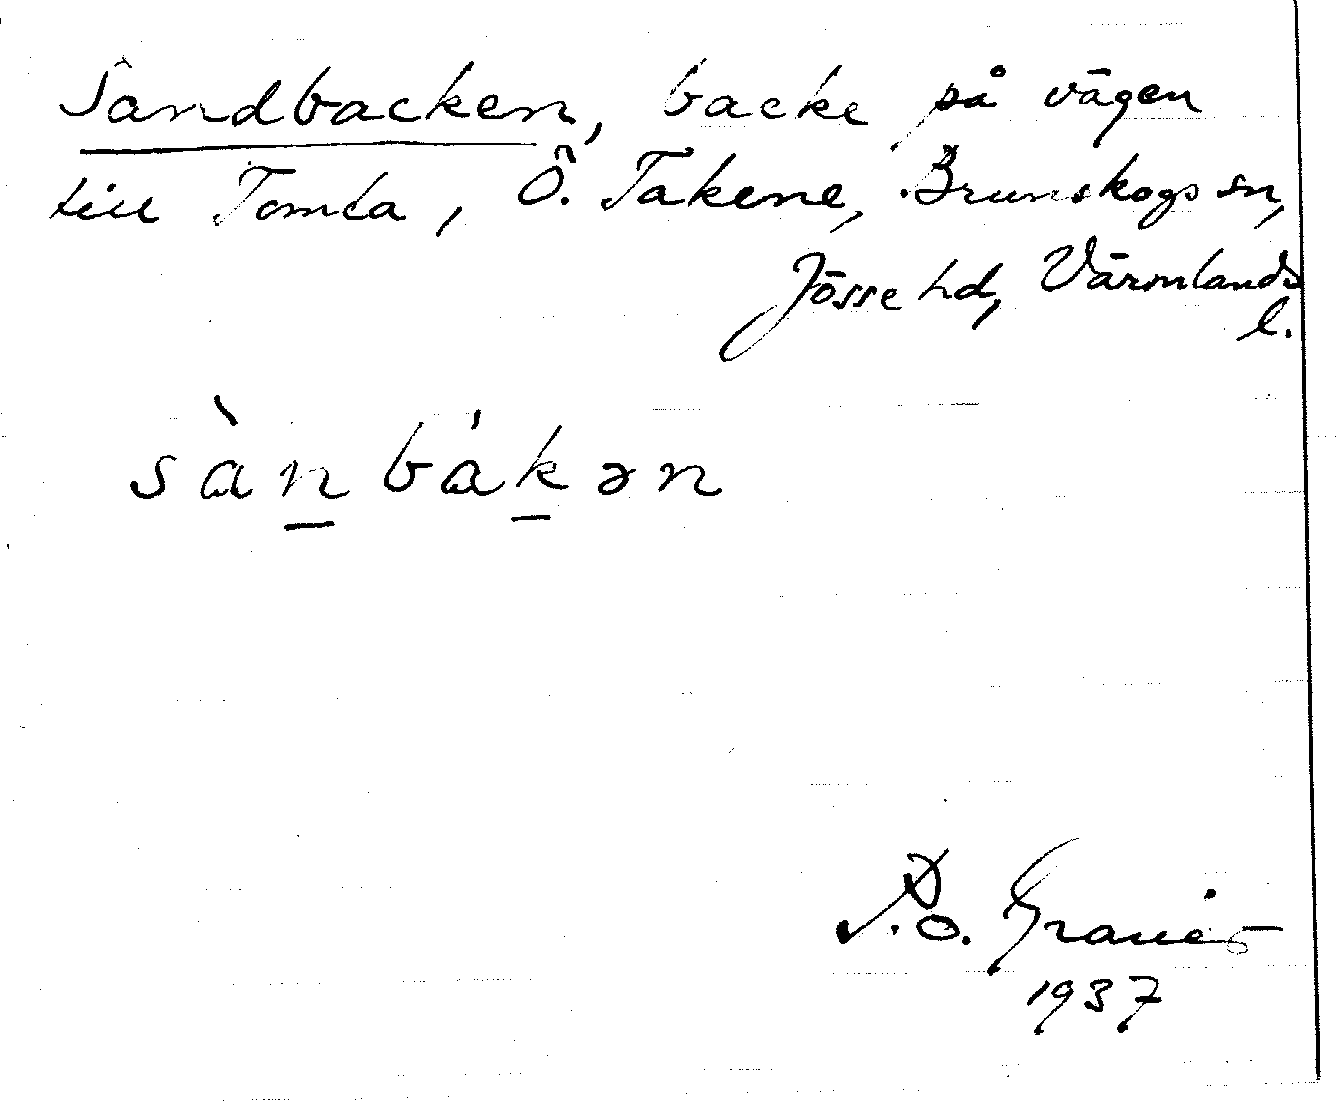 Sandbacken, backe på vägen
till Tomta, Ö. Takene, Brunskogs sn,
Jösse hd, Värmlands
l.
sànbákən
P.O. Granér
1937